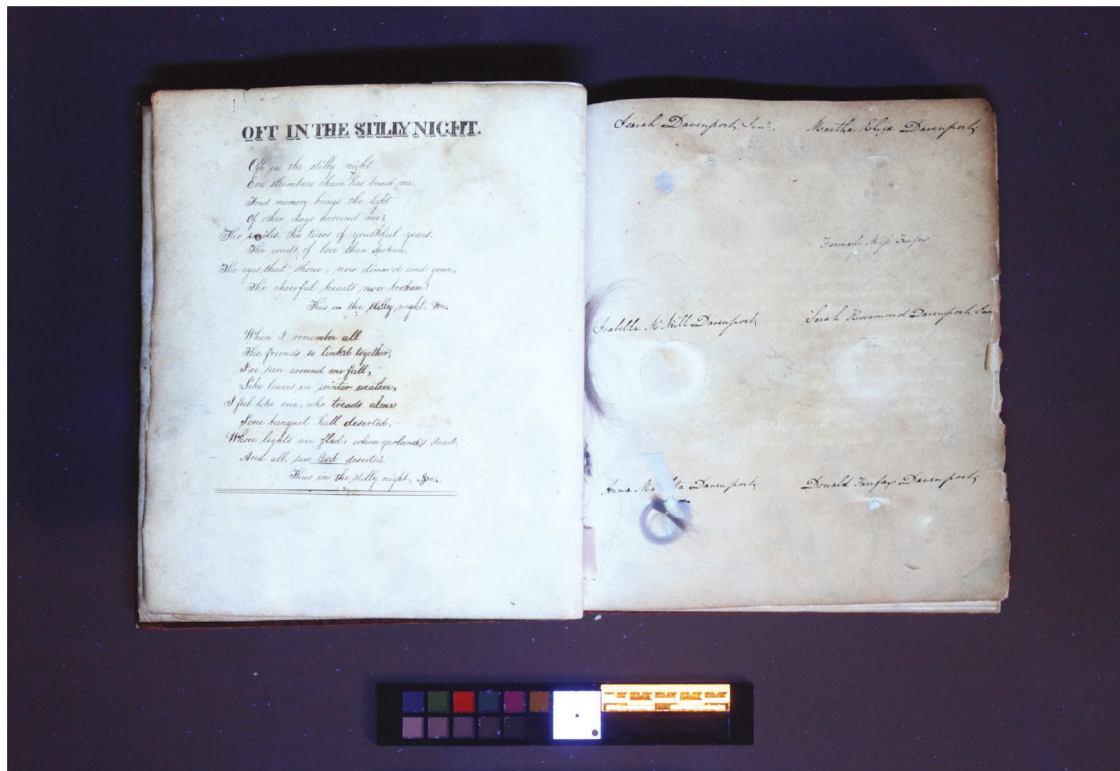 OFT IN THE STILLY NIGHT.
Oft in the stilly night
Ere slumbers chain has bound me,
Fond memory brings the light
Of other days around me;
The smiles, the tears of youthful years,
The words of love then spoken,
The eyes that shone, now dimm'd and gone,
The cheerful hearts now broken!
Thus in the stilly night, &c.
When I remember all
The friends so link'd together,
I've seen around me fall,
Like leaves in winter weather,
I feel like one, who treads alone
Some banquet hall deserted,
Whose lights are fled, whose garlands dead,
And all, save deserted.
Thus in the stilly night, &c.
Isaiah Davenport, Senr.
Martha Eliza Davenport,
Formerly Miss Fairfax
Isabella McNill Davenport,
Sarah Rosamond Davenport,
Anna Davenport,
Donald Fairfax Davenport,